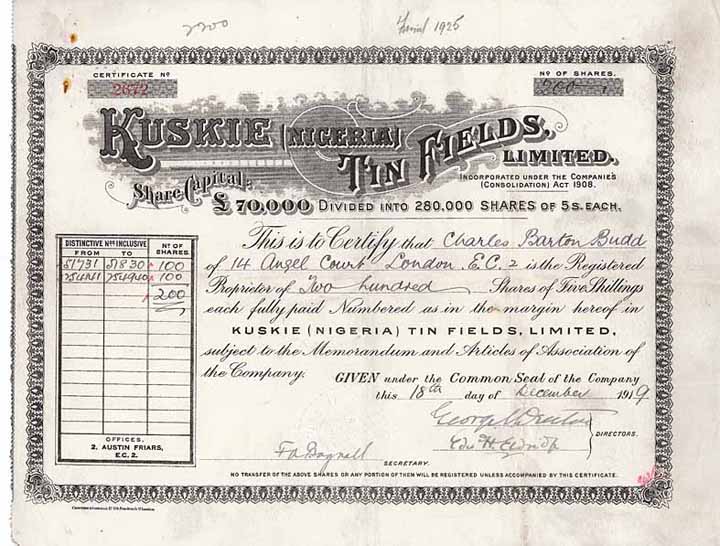 2200
1925
CERTIFICATE Nº
2672
Nº OF SHARES.
200
KUSKIE (NIGERIA) TIN FIELDS, LIMITED.
INCORPORATED UNDER THE COMPANIES (CONSOLIDATION) ACT 1908.
Share Capital:
£70,000 DIVIDED INTO 280,000 SHARES OF 5S. EACH.
DISTINCTIVE Nos INCLUSIVE
FROM TO
Nº OF SHARES.
51731 51830 100
100
200
OFFICES.
2. AUSTIN FRIARS,
E.C. 2.
This is to Certify that Charles Barton Budd
of 14 Angel Court London. E.C. 2 is the Registered
Proprietor of Two hundred Shares of Five Shillings
each fully paid Numbered as in the margin hereof in
KUSKIE (NIGERIA) TIN FIELDS, LIMITED,
subject to the Memorandum and Articles of Association of
the Company.
GIVEN under the Common Seal of the Company
this 18th day of December 1919
DIRECTORS.
SECRETARY.
NO TRANSFER OF THE ABOVE SHARES OR ANY PORTION OF THEM WILL BE REGISTERED UNLESS ACCOMPANIED BY THIS CERTIFICATE.